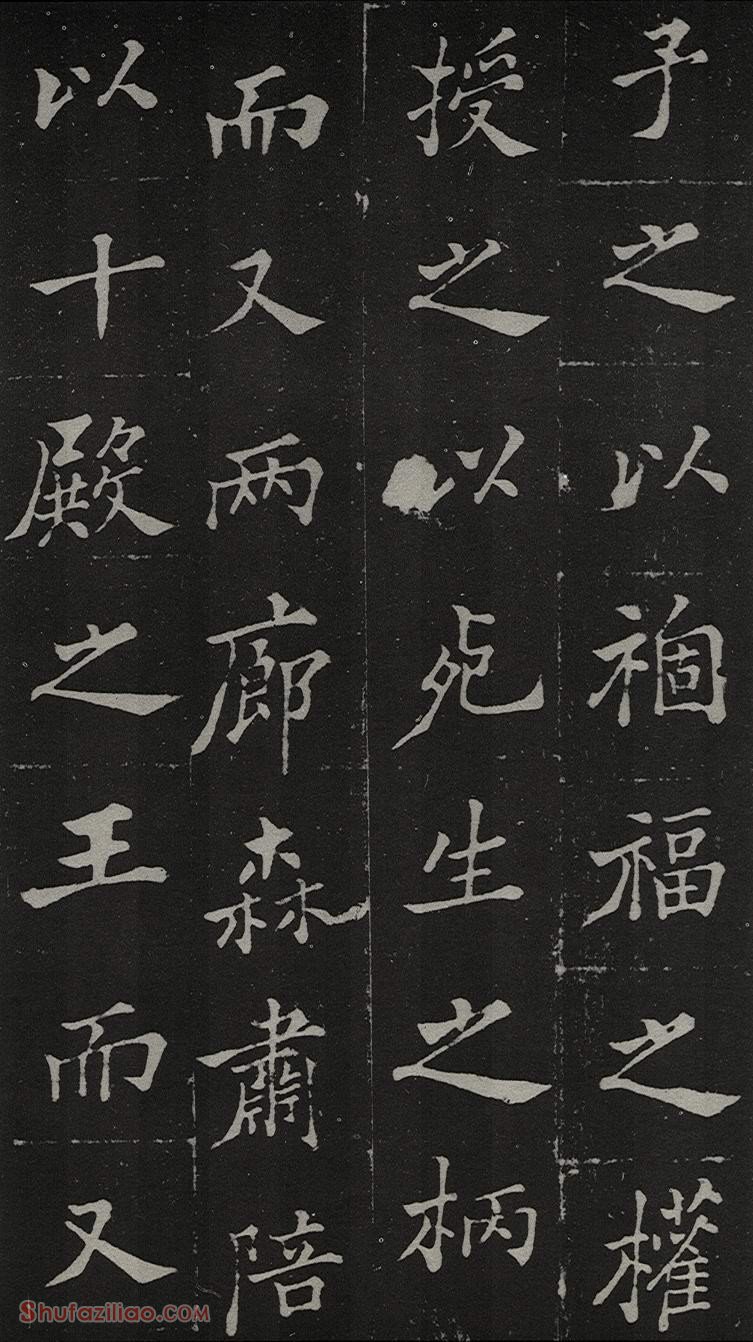 子之以禍福之權
授之以死生之柄
而又两廊森肅陪
以十殿之王而又
Shufaziliao.com